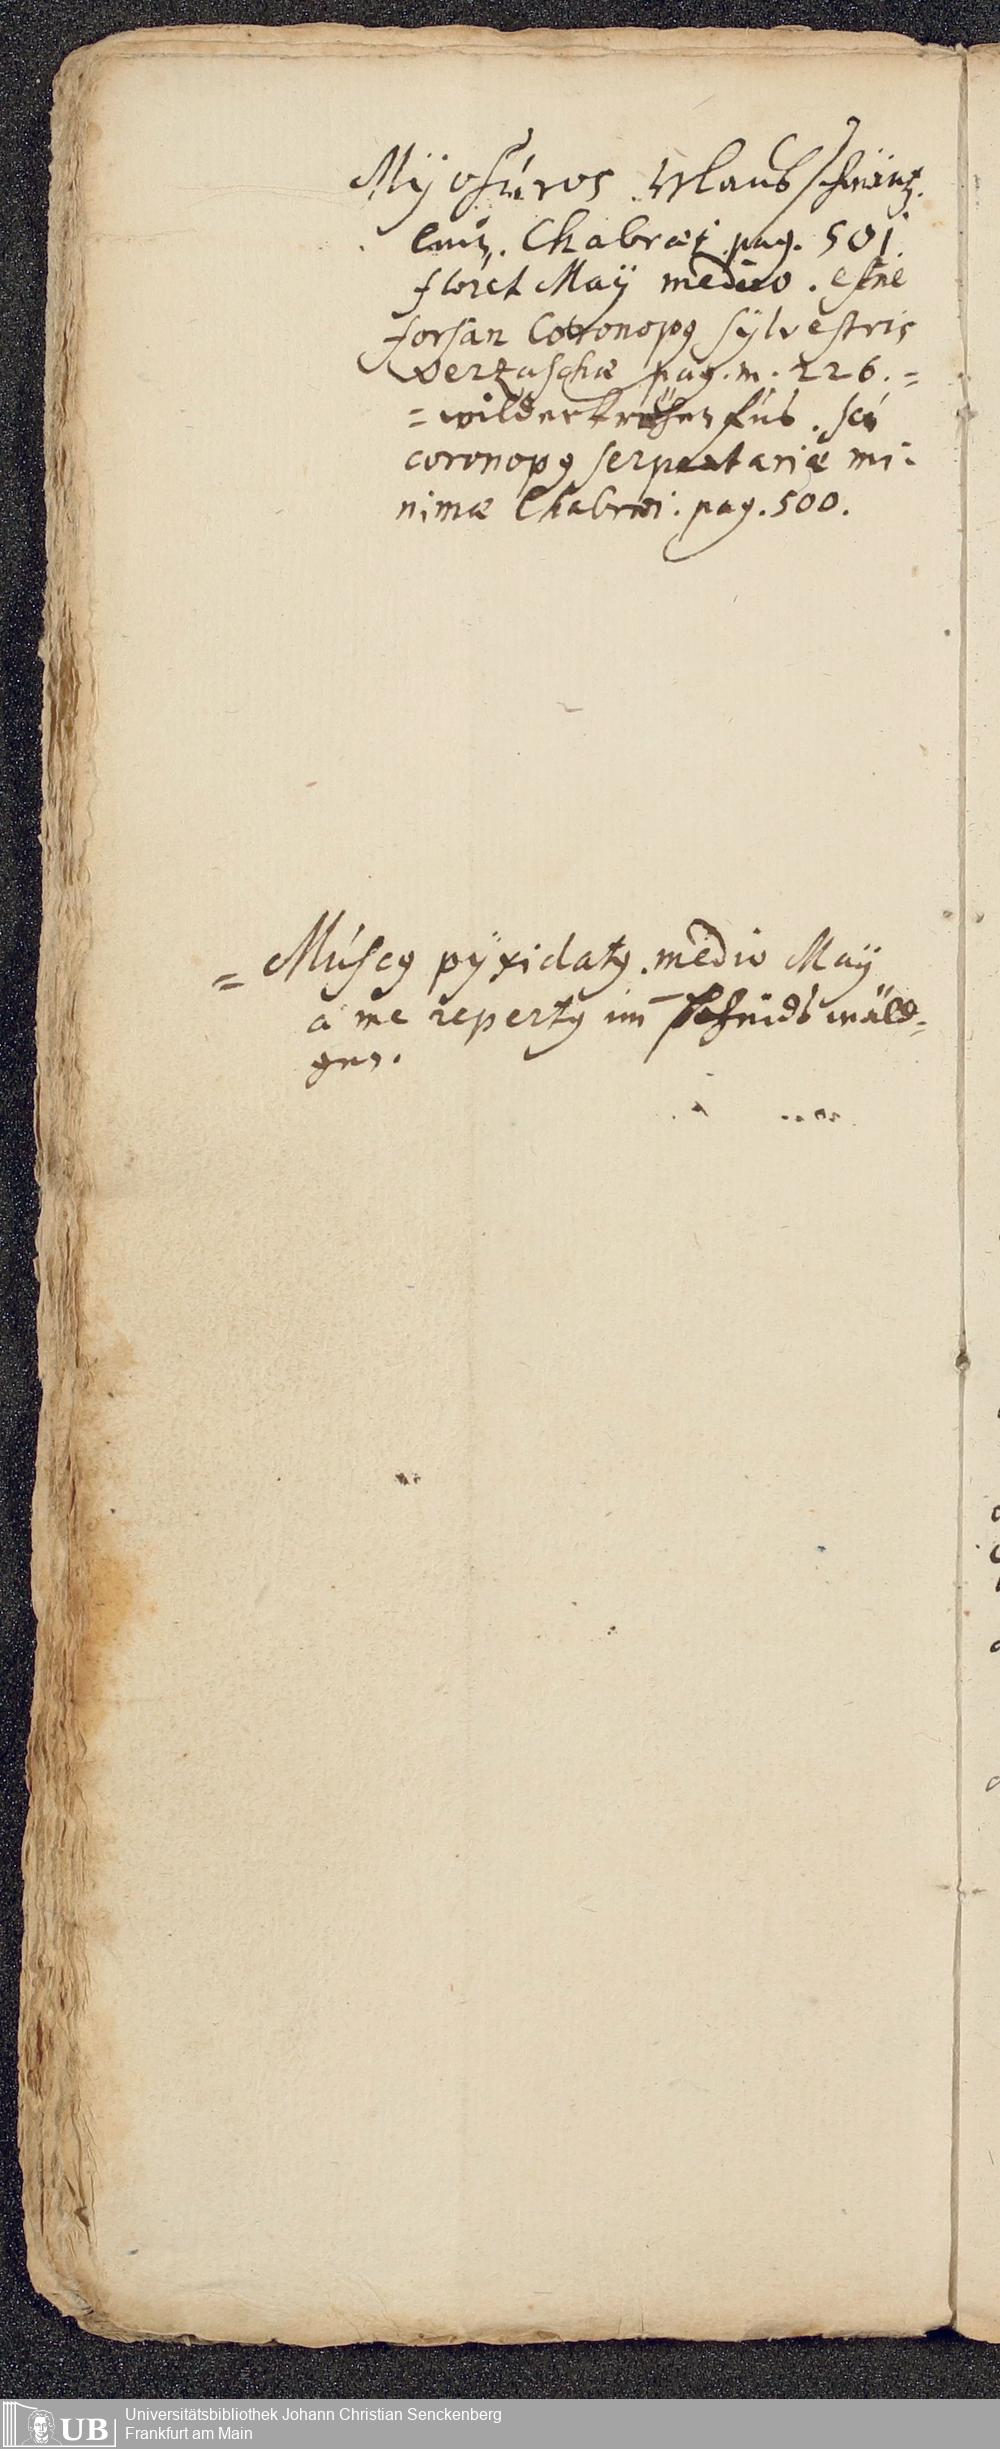 Mÿosúros Maus schwäntz
lein. Chabræi pag. 501.
floret Maÿ medio. estne
forsan Coronopꝯ sÿlvestris
Verzaschæ pag. m. 226. =
= wilder krähen fus. seú
coronopꝯ serpentariæ mi-
nimæ Chabræi. pag. 500.
= Múscꝯ pÿxidatꝯ. medio Maÿ
a me repertꝯ im Schmids wäld=
gen.
UB Universitätsbibliothek Johann Christian Senckenberg
Frankfurt am Main